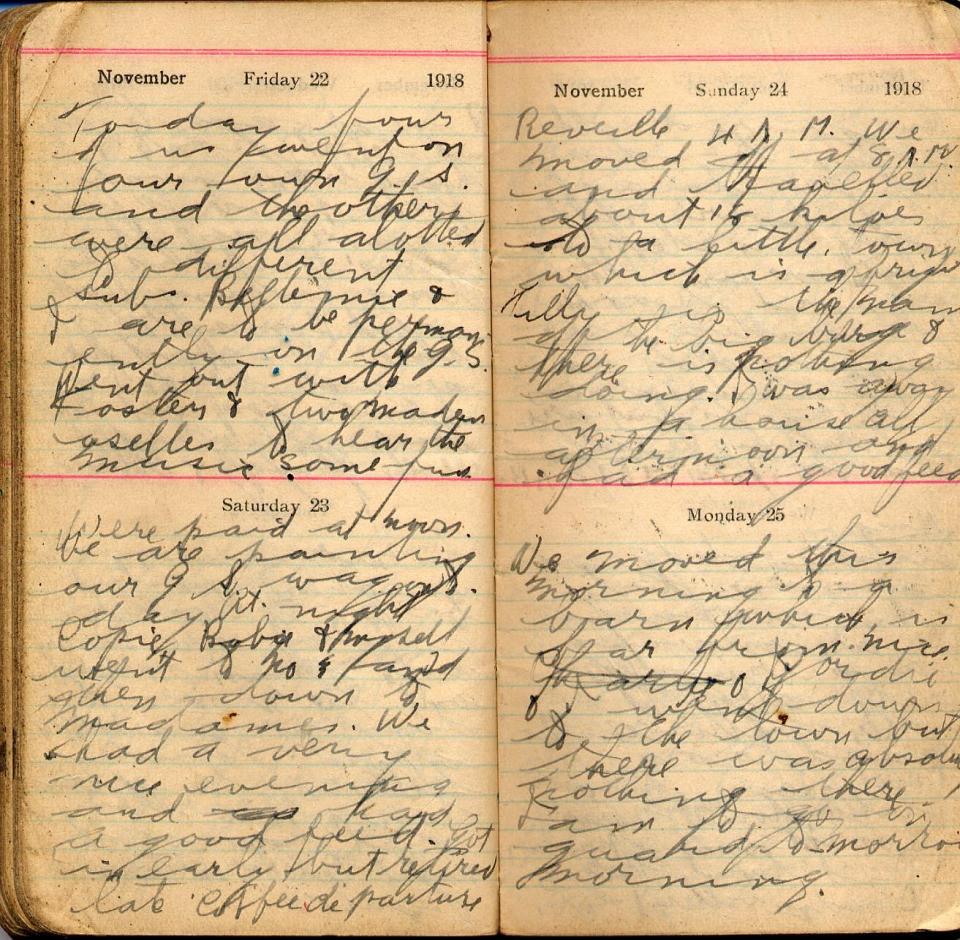 November Friday 22 1918
Today four
of us went on
four own G. S.
and the others
were all alotted
to different
subs. &
I are to be perman
ently on the G S.
Went out with
Foster & two madem
oselles to hear the
music some fun
Saturday 23
Were paid at noon.
We are painting
our G S. wagons
day At night
Copie, Robin & myself
went to No 4 and
then down to
madames. We
had a very
nice evening
and had
a good feed. Got
in early but retired
late
November Sunday 24 1918
Reveille 4 A. M. We
moved off at 8 A. M.
and travelled
about 18 kiloes
to a little town
which is
Tilly is the name
of the big &
there is nothing
doing. I was away
in a house all
afternoon and
had a good feed
Monday 25
We moved this
morning to a
barn which is
far from nice.
Gordie
& I went down
to the town but
there was absolu
nothing there. I
am to go on
guard to morro
morning.